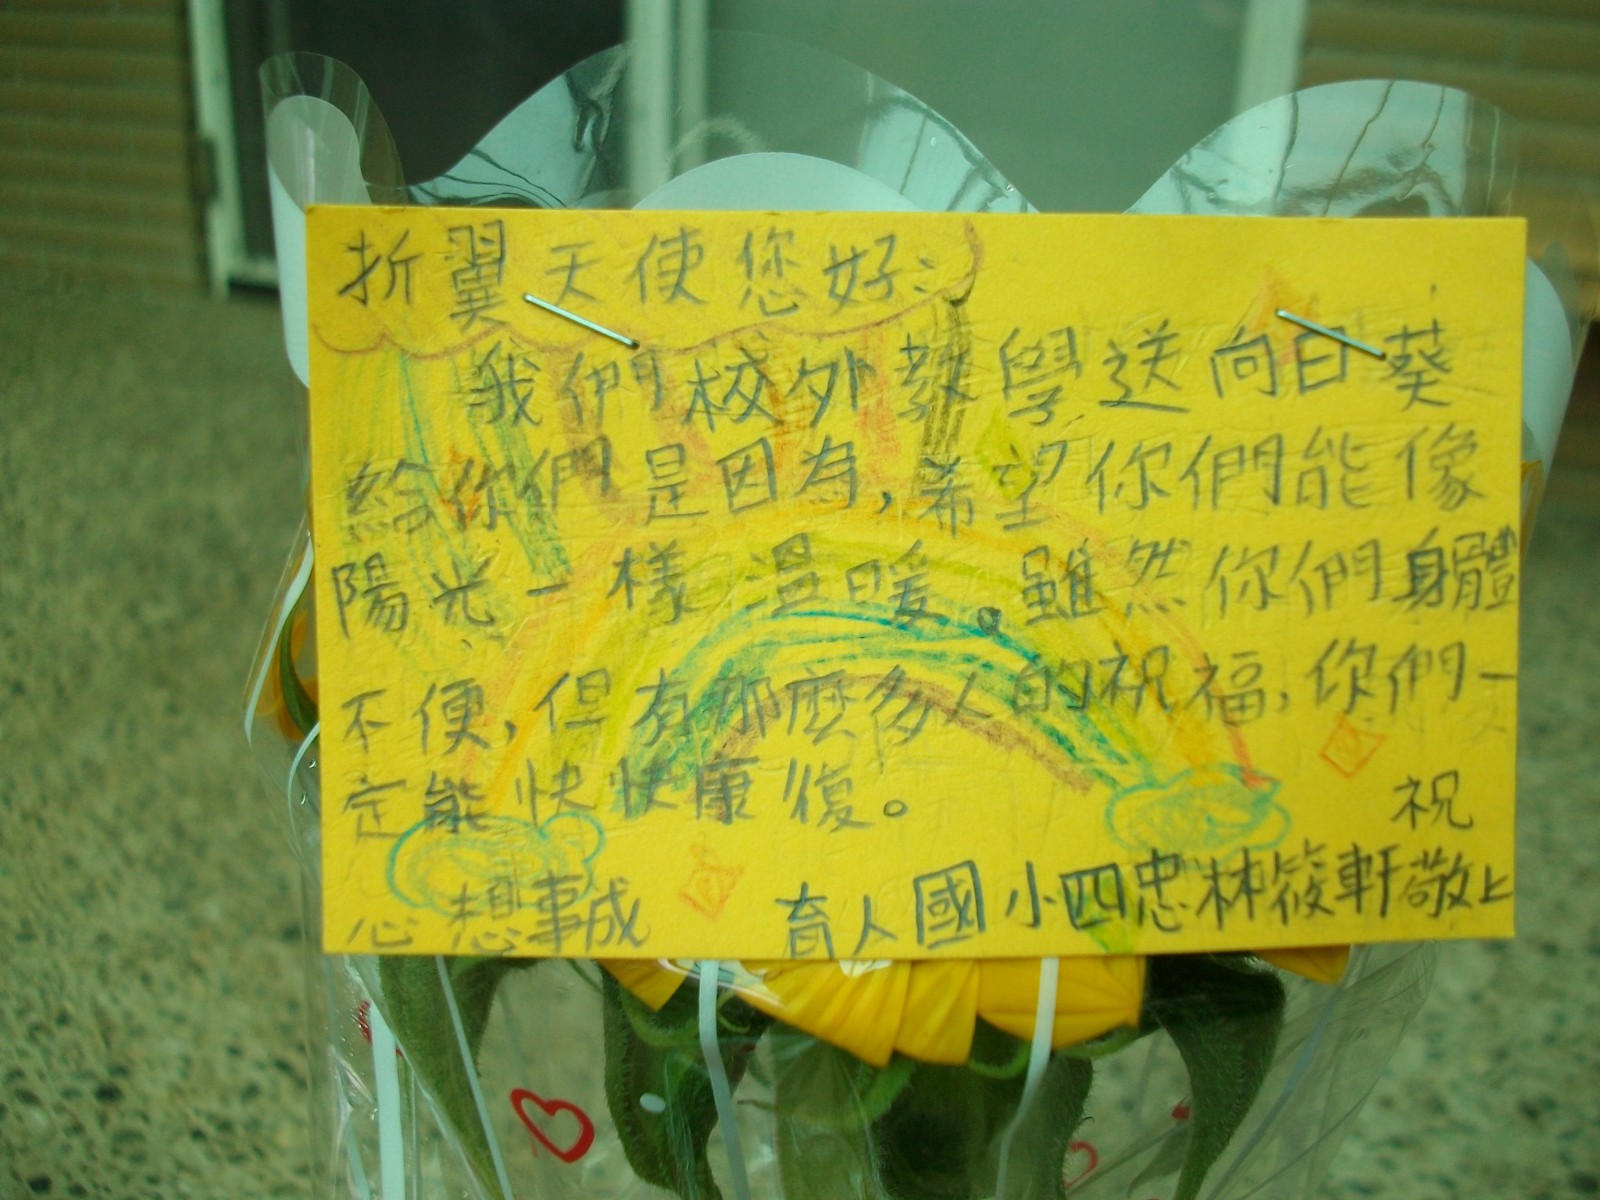 折翼天使您好:
我們校外教學送向日葵
給你們是因為,希望你們能像
陽光一樣溫暖。雖然你們身體
不便,但有那麼多人的祝福,你們一
定能快快康復。
祝
心想事誠
育人國小四忠林筱軒敬上